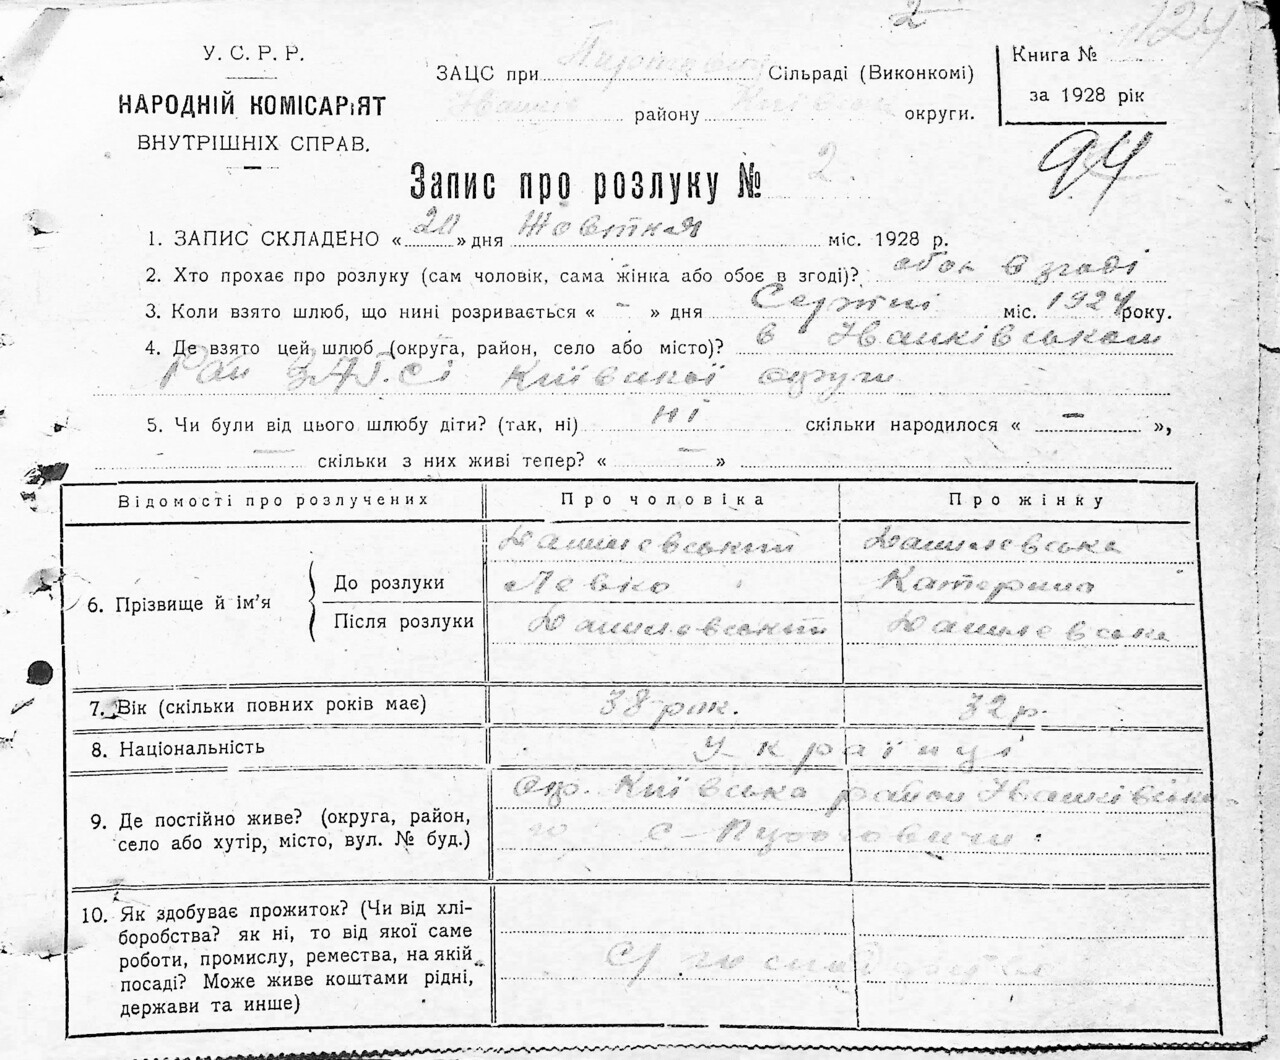 2
124
У. С. Р. Р.
НАРОДНІЙ КОМІСАРІЯТ
ВНУТРІШНІХ СПРАВ.
ЗАЦС при Сільраді (Виконкомі)
району округи.
Книга №
за 1928 рік
94
Запис про розлуку № 2.
1. ЗАПИС СКЛАДЕНО « 20 » дня Жовтня міс. 1928 р.
2. Хто прохає про розлуку (сам чоловік, сама жінка або обоє в згоді)? обоє в згоді
3. Коли взято шлюб, що нині розривається « - » дня Серпні міс. 1924 року.
4. Де взято цей шлюб (округа, район, село або місто)? в Іванківськом
Рай ЗАГ.Сі Київської округи
5. Чи були від цього шлюбу діти? (так, ні) ні скільки народилося « — »,
— скільки з них живі тепер? « — »
Відомості про розлучених Про чоловіка Про жінку
6. Прізвище й ім'я
До розлуки
Данилевський Данилевська
Левко Катерина
Після розлуки Данилевський Данилевська
7. Вік (скільки повних років має) 38 рок. 32 р.
8. Національність Українці
9. Де постійно живе? (округа, район,
село або хутір, місто, вул. № буд.)
Окр. Київська район Іванківсько-
го с
10. Як здобуває прожиток? (Чи від хлі-
боробства? як ні, то від якої саме
роботи, промислу, ремества, на якій
посаді? Може живе коштами рідні,
держави та инше)